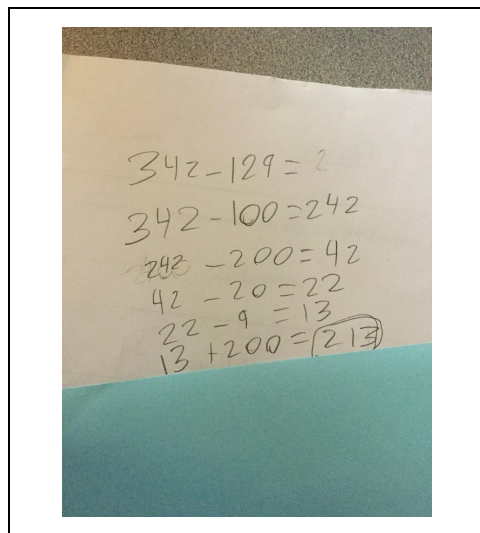 342-129=2
342-100=242
242 -200=42
42 -20=22
22-9 =13
13+200=213